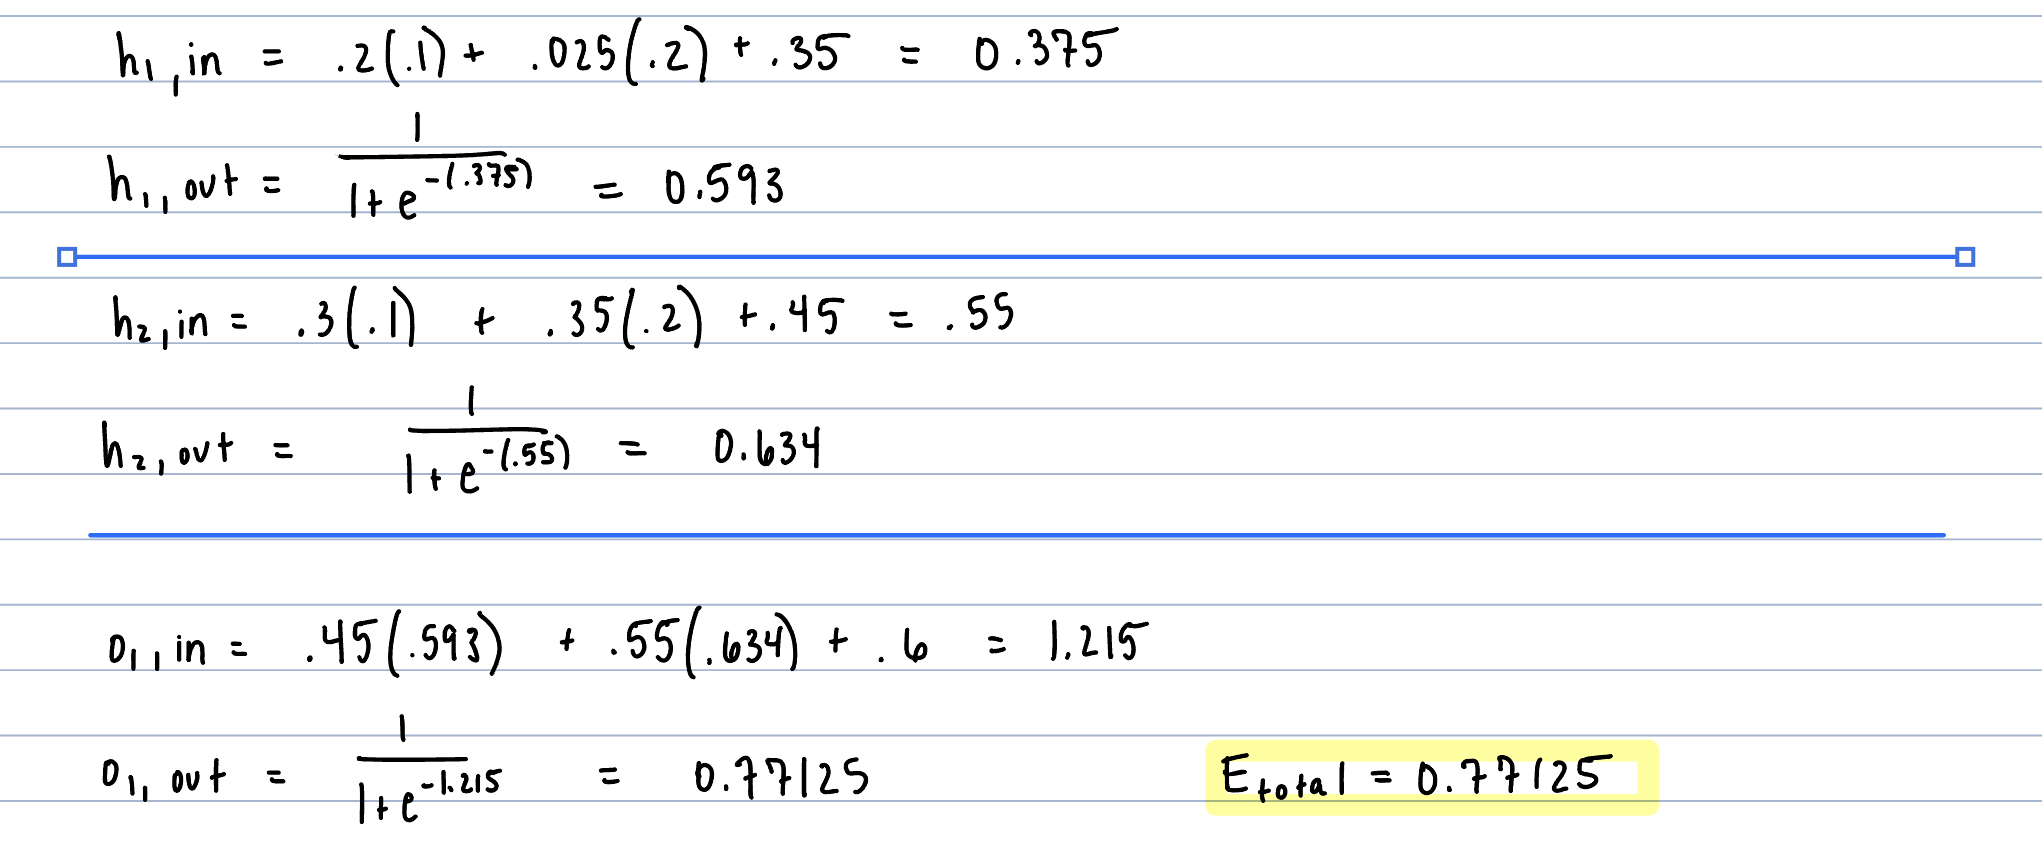 h₁,in = .2(.1) + .025(.2) + .35 = 0.375
h₁,out = 1/(1+e^-(.375)) = 0.593
h₂,in = .3(.1) + .35(.2) + .45 = .55
h₂,out = 1/(1+e^-(.55)) = 0.634
o₁,in = .45(.593) + .55(.634) + .6 = 1.215
o₁,out = 1/(1+e^-1.215) = 0.77125 E_total = 0.77125